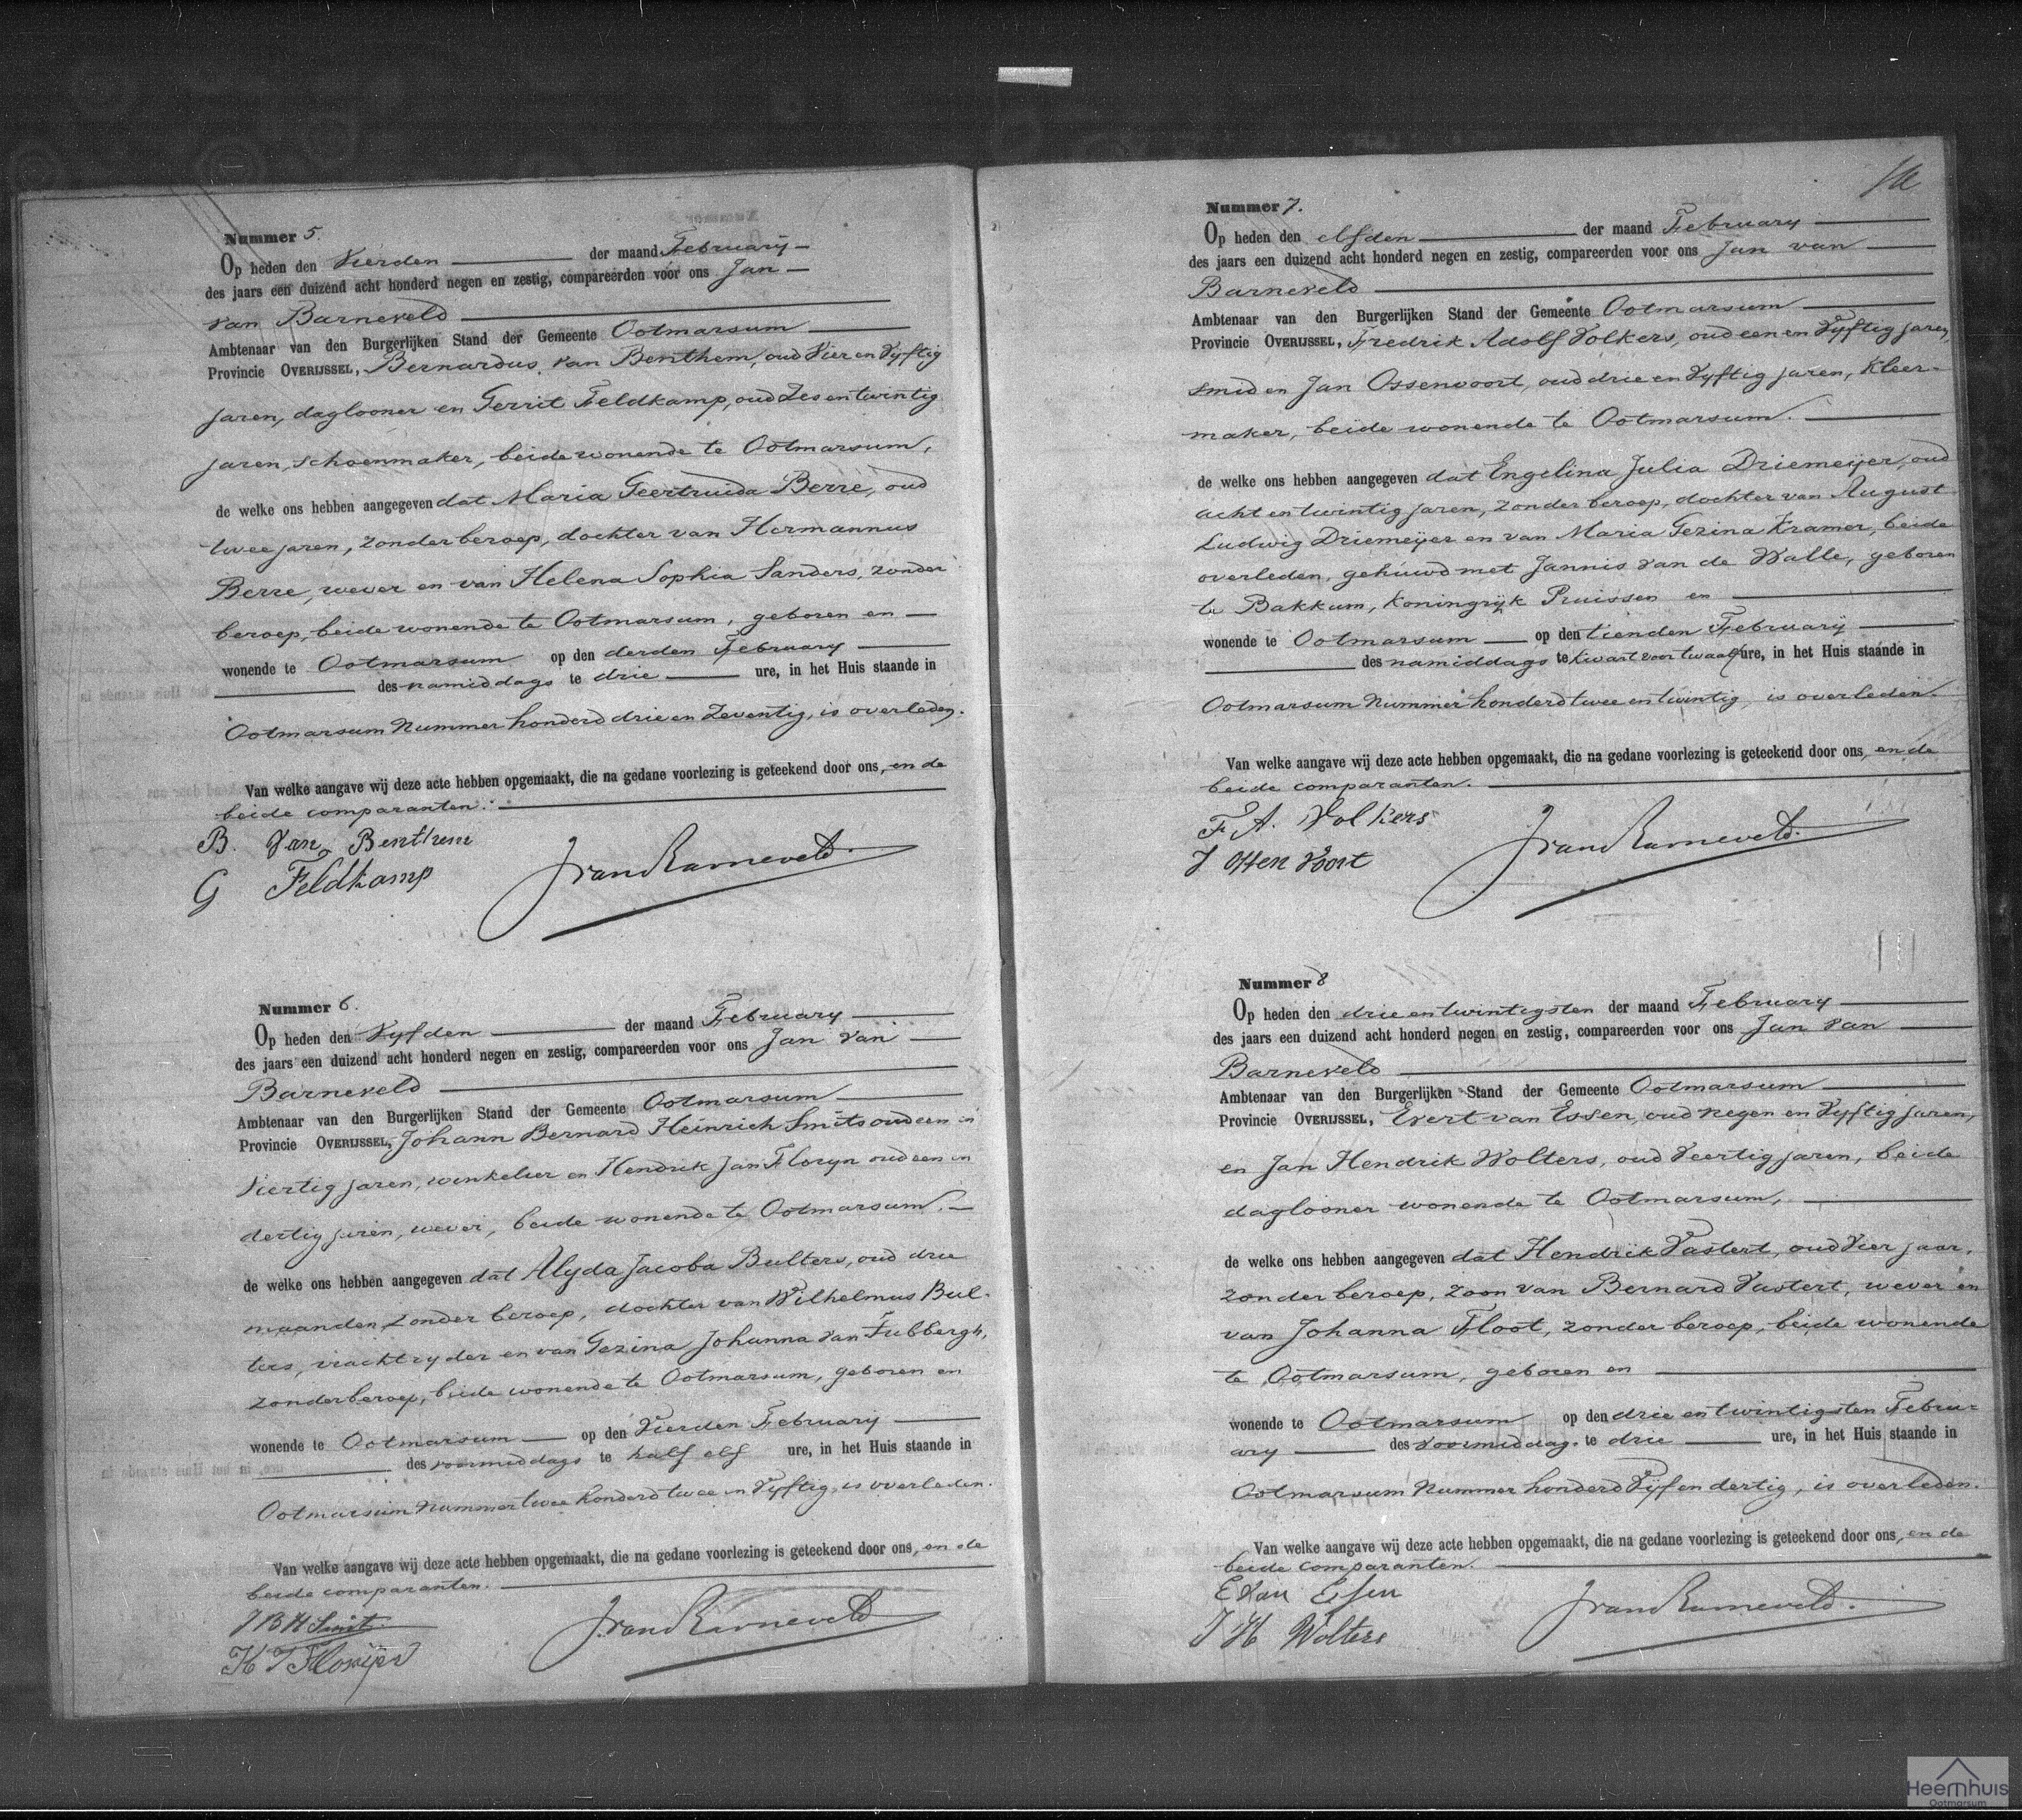 Nummer 5.
Op heden den Vierden der maand February
des jaars een duizend acht honderd negen en zestig, compareerden voor ons Jan
van Barneveld
Ambtenaar van den Burgerlijken Stand der Gemeente Ootmarsum
Provincie OVERIJSSEL, Bernardus van Benthem, oud Vier en Vyftig
jaren, daglooner en Gerrit Feldkamp, oud Zes en twintig
jaren, schoenmaker, beide wonende te Ootmarsum,
de welke ons hebben aangegeven dat Maria Geertruida Berre, oud
twee jaren, zonder beroep, dochter van Hermannus
Berre, wever en van Helena Sophia Sanders, zonder
beroep, beide wonende te Ootmarsum, geboren en
wonende te Ootmarsum op den derden February
des namiddags te drie ure, in het Huis staande in
Ootmarsum Nummer honderd drie en Zeventig, is overleden.
Van welke aangave wij deze acte hebben opgemaakt, die na gedane voorlezing is geteekend door ons, en de
beide comparanten.
B. Van Benthem
G Feldkamp
J van Barneveld.
Nummer 6.
Op heden den Vyfden der maand February
des jaars een duizend acht honderd negen en zestig, compareerden voor ons Jan van
Barneveld
Ambtenaar van den Burgerlijken Stand der Gemeente Ootmarsum
Provincie OVERIJSSEL, Johann Bernard Heinrich Smits oud een en
Viertig jaren, winkelier en Hendrik Jan Floryn oud een en
dertig jaren, wever, beide wonende te Ootmarsum.
de welke ons hebben aangegeven dat Alyda Jacoba Bulters, oud drie
maanden zonder beroep, dochter van Wilhelmus Bul-
ters, vrachtryder en van Gezina Johanna van
zonder beroep, beide wonende te Ootmarsum, geboren en
wonende te Ootmarsum op den Vierden February
des voormiddags te half elf ure, in het Huis staande in
Ootmarsum Nummer twee honderd twee en Vyftig, is overleden.
Van welke aangave wij deze acte hebben opgemaakt, die na gedane voorlezing is geteekend door ons, en de
beide comparanten.
J B H Smit
H J
J van Barneveld
Nummer 7.
Op heden den elfden der maand February
des jaars een duizend acht honderd negen en zestig, compareerden voor ons Jan van
Barneveld
Ambtenaar van den Burgerlijken Stand der Gemeente Ootmarsum
Provincie OVERIJSSEL, Fredrik Adolf Volkers, oud een en Vyftig jaren,
smid en Jan Ossenvoort, oud drie en Vyftig jaren, Kleer-
maker, beide wonende te Ootmarsum.
de welke ons hebben aangegeven dat Engelina Julia Driemeijer, oud
acht en twintig jaren, zonder beroep, dochter van August
Ludwig Driemeijer en van Maria Gezina Kramer, beide
overleden, gehuwd met Jannis van de Walle, geboren
te Bakkum, Koningryk Pruissen en
wonende te Ootmarsum op den tienden February
des namiddags te kwart voor twaalf ure, in het Huis staande in
Ootmarsum Nummer honderd twee en twintig, is overleden.
Van welke aangave wij deze acte hebben opgemaakt, die na gedane voorlezing is geteekend door ons, en de
beide comparanten.
F. A. Volkers
J Ossen Voort
J van Barneveld.
Nummer 8
Op heden den drie en twintigsten der maand February
des jaars een duizend acht honderd negen en zestig, compareerden voor ons Jan van
Barneveld
Ambtenaar van den Burgerlijken Stand der Gemeente Ootmarsum
Provincie OVERIJSSEL, Evert van Essen, oud negen en Vyftig jaren,
en Jan Hendrik Wolters, oud Veertig jaren, beide
daglooner wonende te Ootmarsum,
de welke ons hebben aangegeven dat Hendrik Vastert, oud Vier jaar,
zonder beroep, zoon van Bernard Vastert, wever en
van Johanna Floot, zonder beroep, beide wonende
te Ootmarsum, geboren en
wonende te Ootmarsum op den drie en twintigsten Febru-
ary des voormiddags te drie ure, in het Huis staande in
Ootmarsum Nummer honderd Vijf en dertig, is overleden.
Van welke aangave wij deze acte hebben opgemaakt, die na gedane voorlezing is geteekend door ons, en de
beide comparanten.
E van Essen
J H Wolters
J van Barneveld.
Heemhuis
Ootmarsum